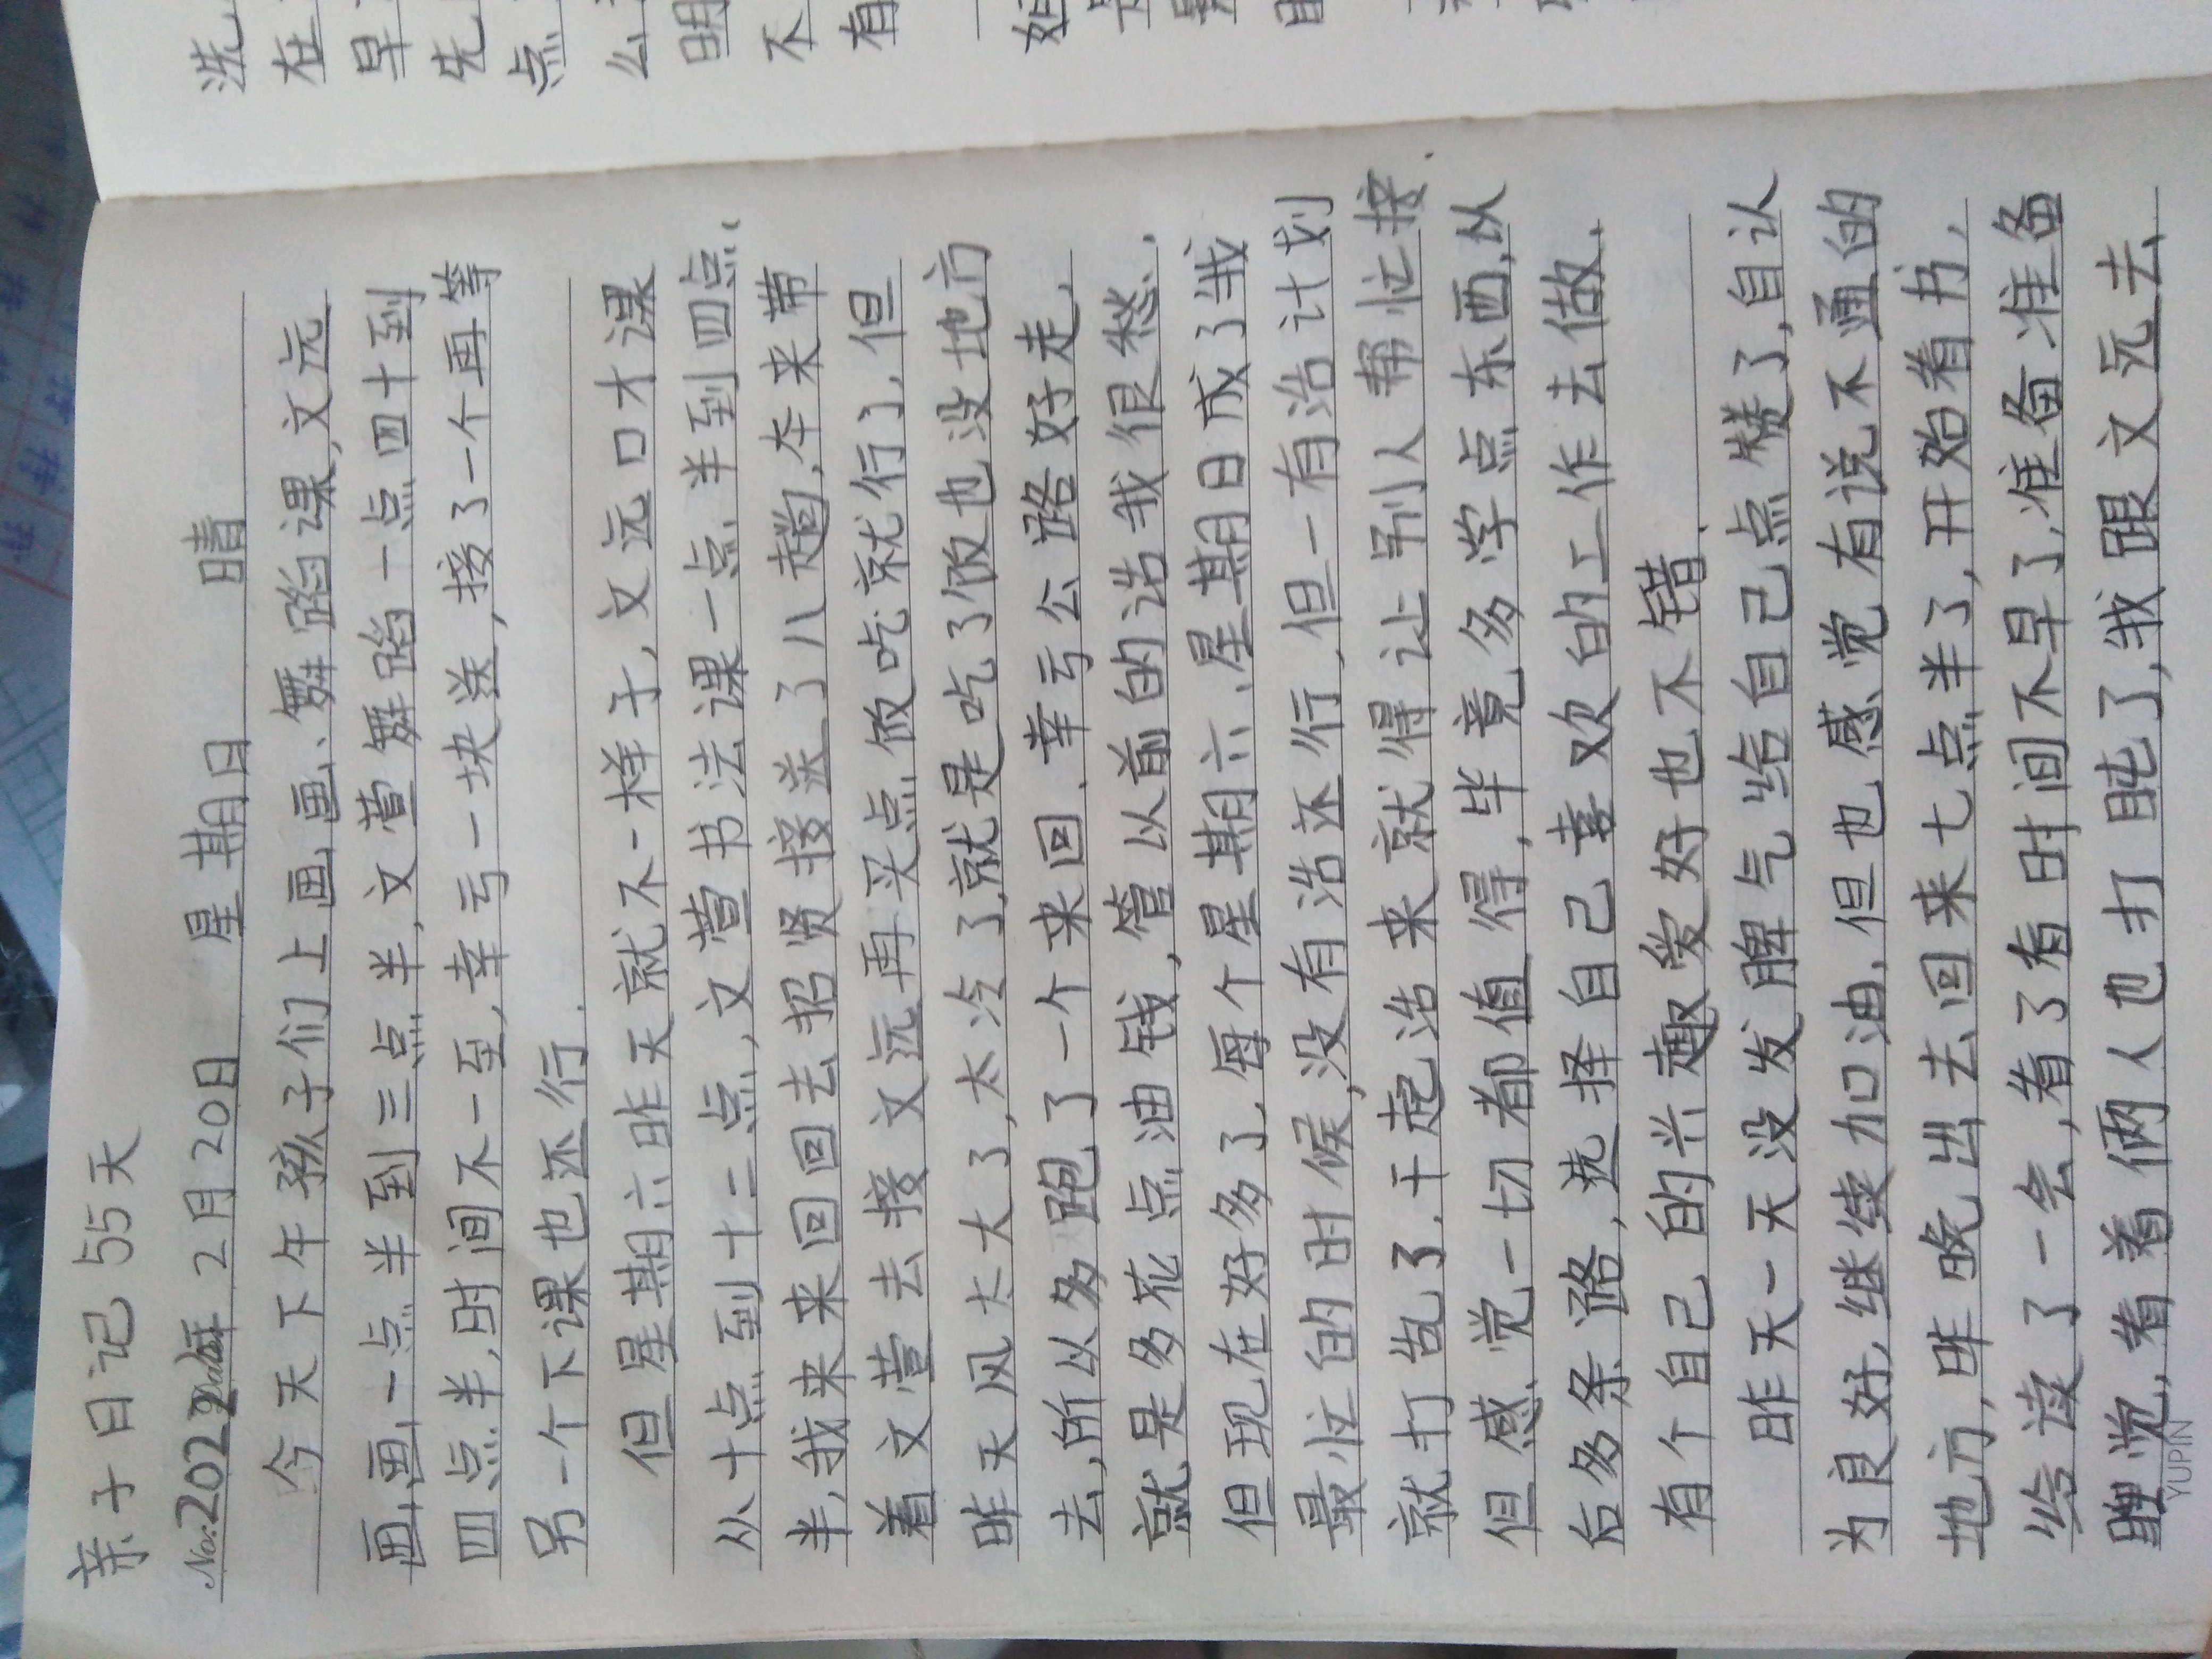 亲子日记 55天
No: 2022年 2月20日 星期日 晴
今天下午孩子们上画画、舞蹈课,文远
画画一点半到三点半,文萱舞蹈一点四十到
四点半,时间不一至,幸亏一块送,接了一个再等
另一个下课也还行.
但星期六昨天就不一样子,文远口才课
从十点到十二点,文萱书法课一点半到四点
半,我来来回回去招贤接送了八趟,本来带
着文萱去接文远再买点饭吃就行了,但
昨天风太大了,太冷了,就是吃了饭也没地方
去,所以多跑了一个来回.幸亏公路好走,
就是多花点油钱,管以前的话我很愁.
但现在好多了,每个星期六、星期日成了我
最忙的时候,没有活还行,但一有活计划
就打乱了,干起活来就得让别人帮忙接.
但感觉一切都值得,毕竟多学点东西,以
后多条路,选择自己喜欢的工作去做.
有个自己的兴趣爱好也不错.
昨天一天没发脾气给自己点赞了,自认
为良好,继续加油,但也感觉有说不通的
地方,昨晚出去回来七点半了,开始看书,
给读了一会,看了看时间不早了,准备准备
睡觉,看着俩人也打盹了,我跟文远去
YUPIN
洗
在
早
先
点
么
明
不
有